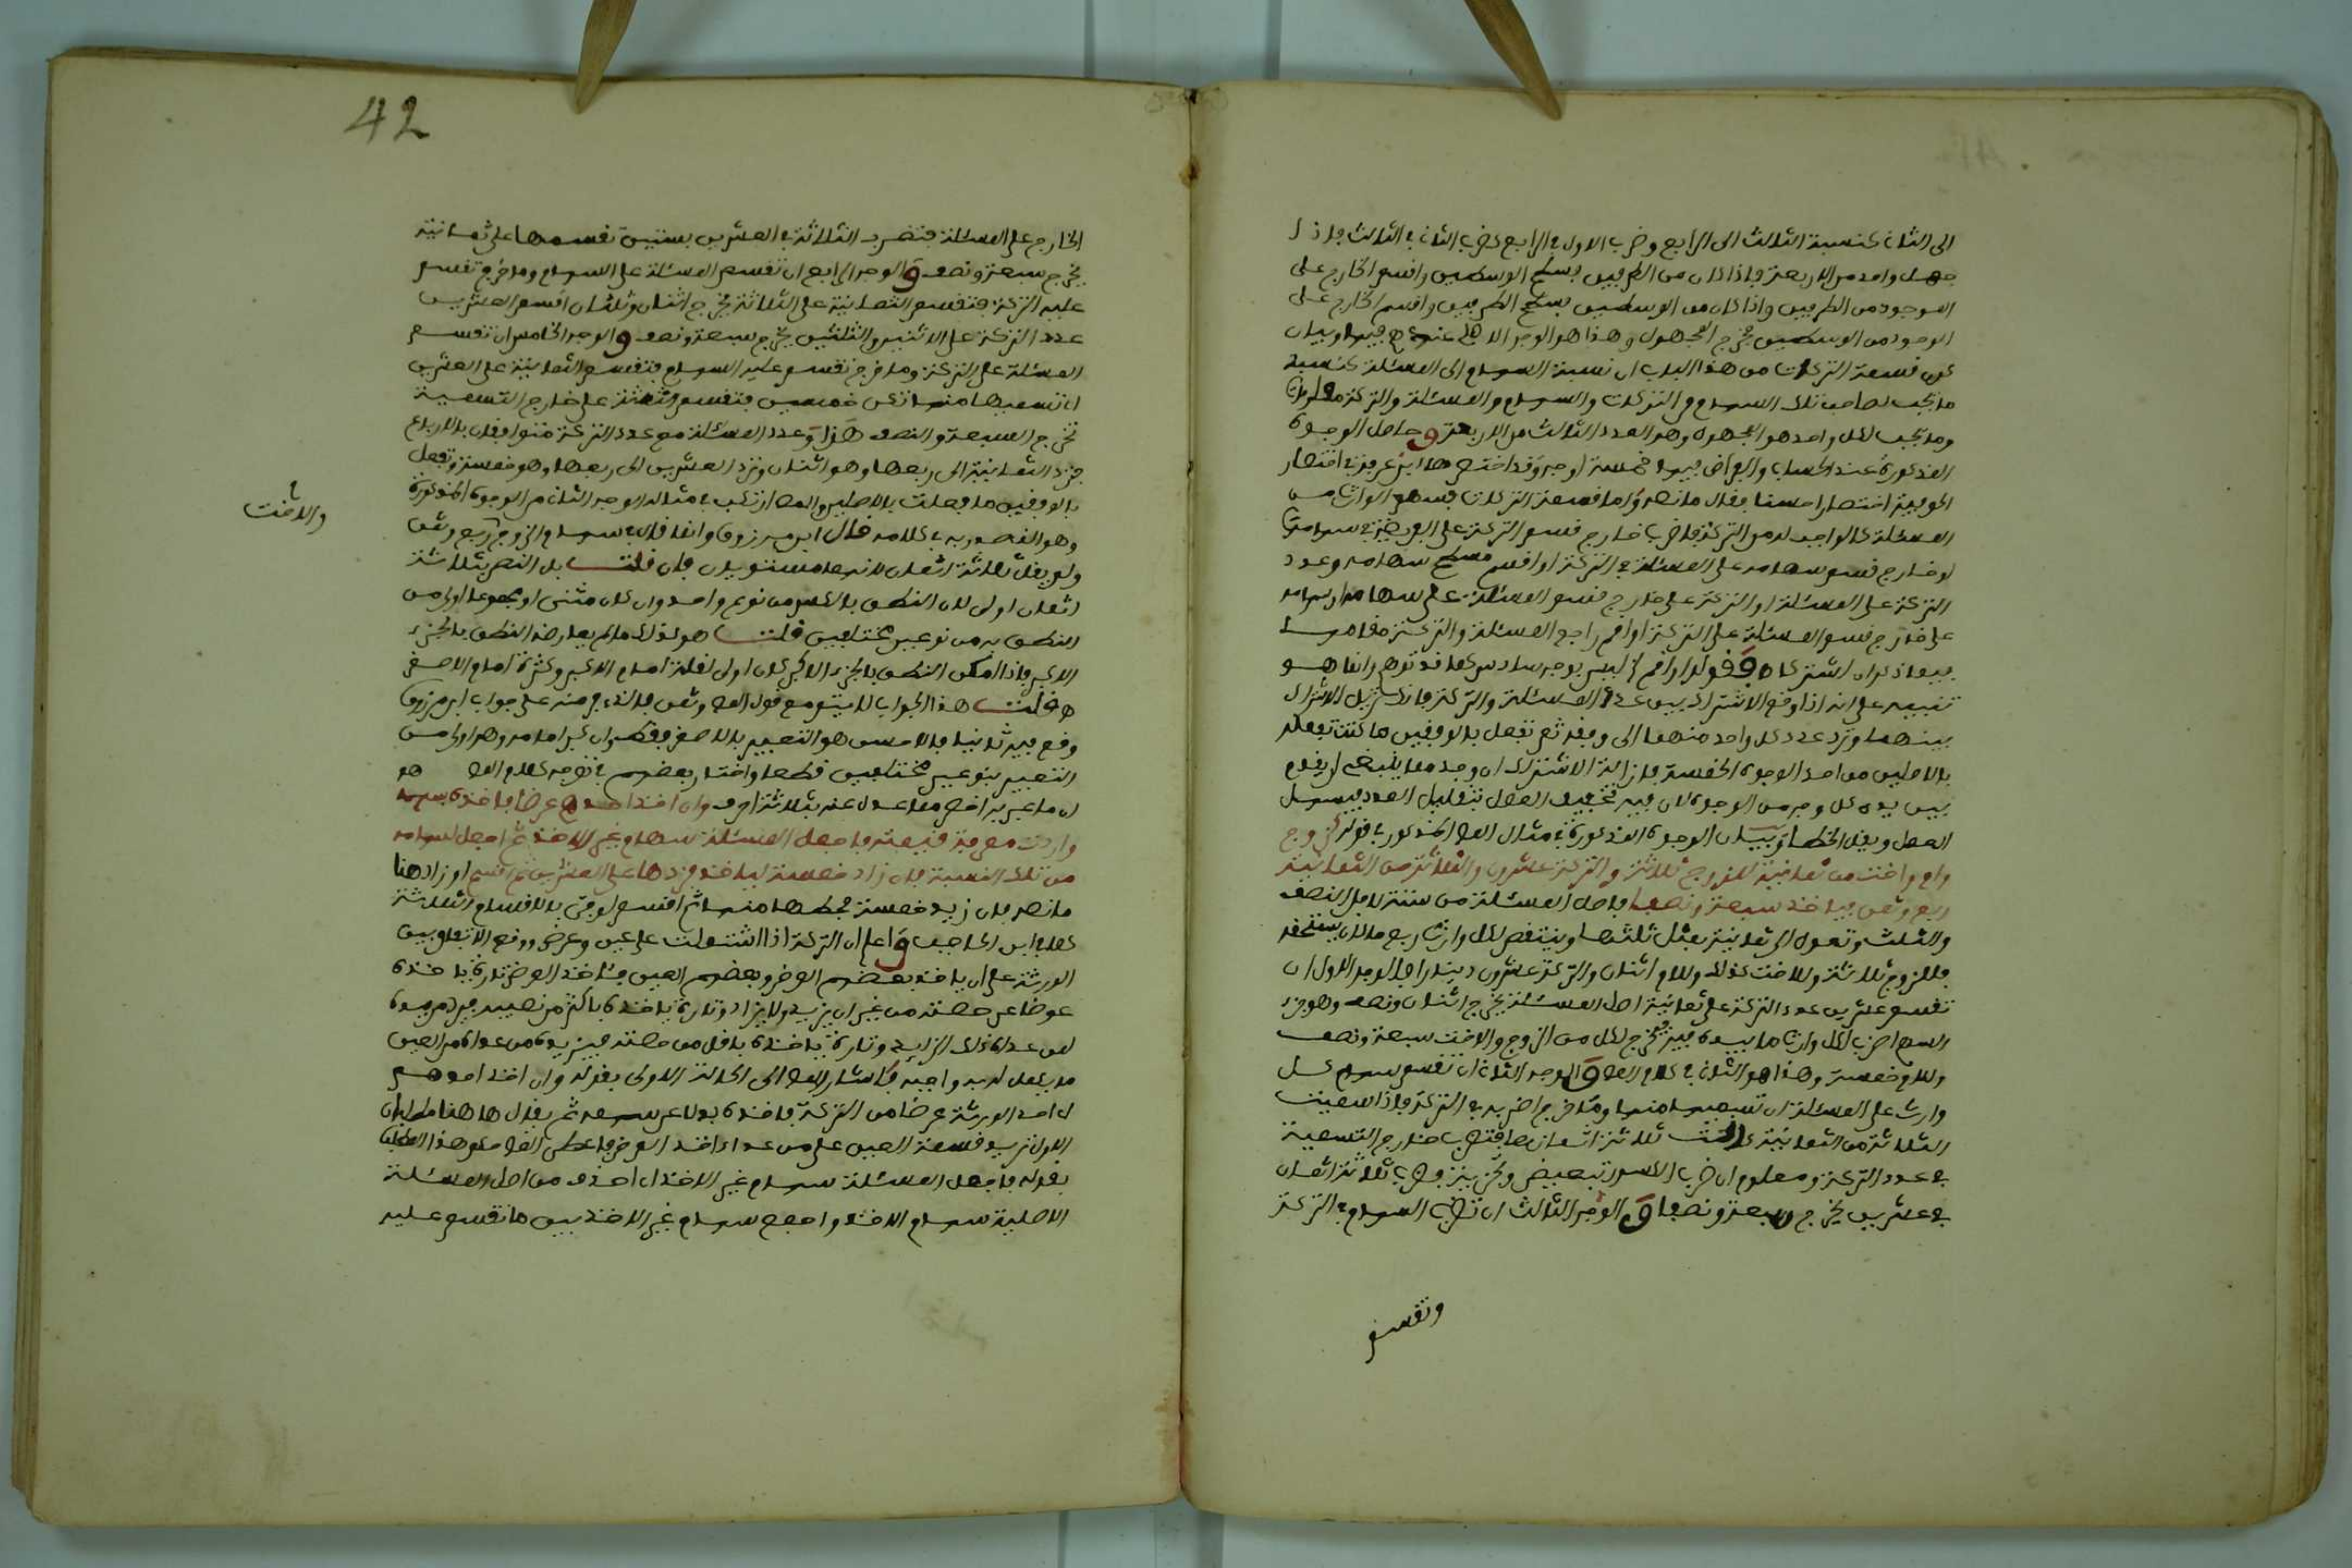 الى الثاني كنسبة الثالث الى الرابع وضرب الاول في الرابع كضرب الثاني في الثالث فاذا
جهل واحد من الاربعة فاذا كان من الطرفين بسطح الوسطين واقسم الخارج على
الموجود من الطرفين واذا كان من الوسطين بسطح الطرفين واقسم الخارج على
الموجود من الوسطين يخرج المجهول وهذا هو الوجه الاصلي عندهم فيها وبيان
كون قسمة التركات من هذا الباب ان نسبة السهام الى المسئلة كنسبة
ما يجب لصاحب تلك السهام من التركات والسهام والمسئلة والتركة معلومات
وما يجب لكل واحد هو المجهول وهو العدد الثالث من الاربعة وحاصل الوجوه
المذكورة عند الحساب والفراض فيها خمسة اوجه وقد اختصرها ابن عرفة في اختصار
الحوفية اختصارا حسنا فقال ما نصه واما قسمة التركات فسهم الوارث من
المسئلة كالواجب له من التركة فاضرب خارج قسم التركة على الفريضة في سهامه
او خارج قسم سهامه على المسئلة في التركة او اقسم مسطح سهامه وعدد
التركة على المسئلة او التركة على خارج قسم المسئلة على سهامه او سهامه
على خارج قسم المسئلة على التركة او اقم راجع المسئلة والتركة مقامهما
فيما ذكر ان اشتركا ه وقوله او اقم الخ ليس بوجه سادس كما قد توهم وانما هو
تنبيه على انه اذا وقع الاشتراك بين عدد المسئلة والتركة فانك تزيل الاشتراك
بينهما وترد عدد كل واحد منهما الى وفقه ثم تفعل بالوفقين ما كنت تفعله
بالاصلين من احد الوجوه الخمسة فازالة الاشتراك ان وجد مما ينبغي ان يقدم
بين يدي كل وجه من الوجوه لان فيه تخفيف العمل بتقليل العدد فيسهل
العمل ويقل الخطأ وبيان الوجوه المذكورة في مثال المص المذكور في قوله كزوج
وام واخت من ثمانية للزوج ثلاثة والتركة عشرون والثلاثة من الثمانية
ربع وثمن فياخذ سبعة ونصفا فاصل المسئلة من ستة لاجل النصف
والثلث وتعول الى ثمانية بمثل ثلثها وينتقص لكل وارث ربع ما كان يستحقه
فللزوج ثلاثة وللاخت كذلك وللام اثنان والتركة عشرون دينارا فالوجه الاول ان
تقسم عشرين عدد التركة على ثمانية اصل المسئلة يخرج اثنان ونصف وهو جزء
السهم اضرب لكل وارث ما بيده فيه يخرج لكل من الزوج والاخت سبعة ونصف
وللام خمسة وهذا هو الثاني في كلام المص والوجه الثاني ان تقسم سهام كل
وارث على المسئلة اي تسميها منها وما خرج اضربه في التركة فاذا سميت
الثلاثة من الثمانية كانت ثلاثة اثمانها فتضرب خارج التسمية
في عدد التركة ومعلوم ان ضرب الكسور تبعيض وتجزية فضرب ثلاثة اثمان
في عشرين يخرج سبعة ونصفا والوجه الثالث ان تضرب السهام في التركة
وتقسم
42
الخارج على المسئلة فتضرب الثلاثة في العشرين بستين تقسمها على ثمانية
يخرج سبعة ونصف والوجه الرابع ان تقسم المسئلة على السهام وما خرج تقسم
عليه التركة فتقسم الثمانية على الثلاثة يخرج اثنان وثلثان اقسم العشرين
عدد التركة على الاثنين والثلثين يخرج سبعة ونصف والوجه الخامس ان تقسم
المسئلة على التركة وما خرج تقسم عليه السهام فتقسم الثمانية على العشرين
اي تسميها منها تكن خمسين فتقسم الثلاثة على خارج التسمية
تخرج السبعة والنصف هذا وعدد المسئلة مع عدد التركة متوافقان بالارباع
فترد الثمانية الى ربعها وهو اثنان وترد العشرين الى ربعها وهو خمسة وتفعل
بالوفقين ما فعلت بالاصلين والمص ارتكب في مثاله الوجه الثاني من الوجوه المذكورة
وهو المصدر به في كلامه قال ابن مرزوق وانما قال في سهام الزوج ربع وثمن
والاخت
ولم يقل ثلاثة اثمان لانهما مستويان فان قلت بل النص بثلاثة
اثمان اولى لان النطق بالكسر من نوع واحد وان كان مثنى او مجموعا اولى من
النطق به من نوعين مختلفين قلت هو كذلك ما لم يعارضه النطق بالجزء
الاكبر فاذا امكن النطق بالجزء الاكبر كان اولى لقلة امام الاكبر وكثرة امام الاصغر
ه قلت هذا الجواب لا يتم مع قول المص وثمن فالذي فر منه على جواب ابن مرزوق
وقع فيه ثانيا فالاحسن هو التعبير بالاصغر فقط وان كبر امامه وهو اولى من
التعبير بنوعين مختلفين قطعا واختار بعضهم في توجيه كلام المص هو
ان ما عبر به اخصر مما عدل عنه بثلاثة احرف وان اخذ احدهم عرضا فاخذه بسهمه
واردت معرفة قيمته فاجعل المسئلة سهام غير الاخذ ثم اجعل لسهامه
من تلك النسبة فان زاد خمسة لياخذ فزدها على العشرين ثم اقسم او زاد هنا
ما نصه فان زيد خمسة فحطها منها ثم اقسم لو فتى بالاقسام الثلاثة
كما في ابن الحاجب واعلم ان التركة اذا اشتملت على عين وعرض ووقع الاتفاق بين
الورثة على ان ياخذ بعضهم العرض وبعضهم العين فاخذ العرض تارة ياخذه
عوضا عن حصته من غير ان يزيد ولا يزاد وتارة ياخذه باكثر من نصيبه فيرد من يده
لمن عداه ذلك الزايد وتارة ياخذه باقل من حصته فيزيده من عداه من العين
ما يكمل له به واجبه فاشار المص الى الحالة الاولى بقوله وان اخذ احدهم
اي احد الورثة عرضا من التركة فاخذه بدلا عن سهمه ثم يقال ها هنا مطلبان
الاول نريد قسمة العين على من عدا اخذ العرض فاعطى المص حكم هذا المطلب
بقوله فاجعل المسئلة سهام غير الاخذ اي احذف من اصل المسئلة
الاصلية سهام الاخذ واجمع سهام غير الاخذ يبين ما تقسم عليه